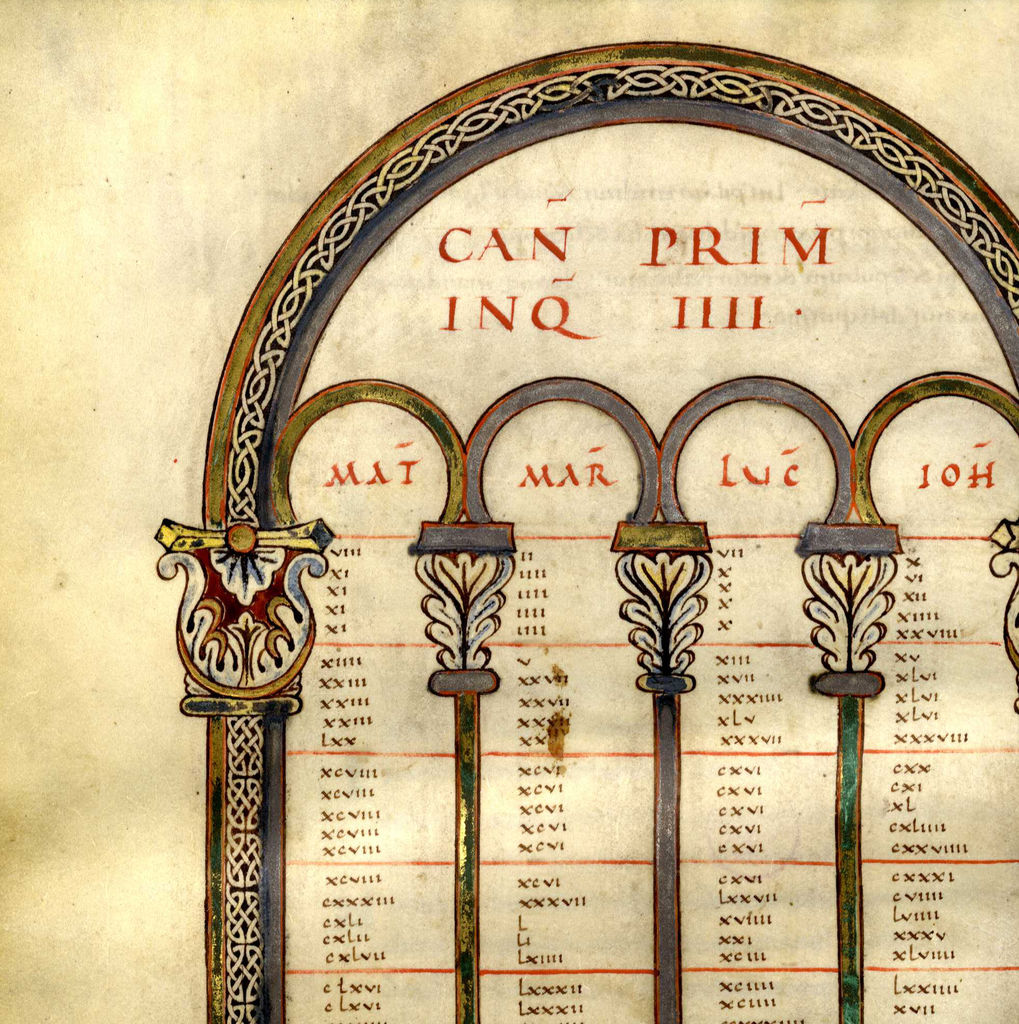 CAN̄ PRIM̄
INQ̄ IIII ·
MAT̄ MAR̄ LUC̄ IOH̄
viii ii vii x
xi iiii x vi
xi iiii x xii
xi iiii x xiiii
xi iiii x xxviii
xiiii v xiii xv
xxiii xxvii xvii xlvi
xxiii xxvii xxxiiii xlvi
xxiii xlv xlvi
lxx xxxvii xxxviii
xcviii xcvi cxvi cxx
xcviii xcvi cxvi cxi
xcviii xcvi cxvi xl
xcviii xcvi cxvi cxliiii
xcviii xcvi cxvi cxxviiii
xcviii xcvi cxvi cxxxi
cxxxiii xxxvii lxxvii cviiii
cxli l xviiii lviiii
cxlii li xxi xxxv
cxlvii lxiiii xciii xlviiii
clxvi lxxxii xciiii lxxiiii
clxvi lxxxii xciiii xvii